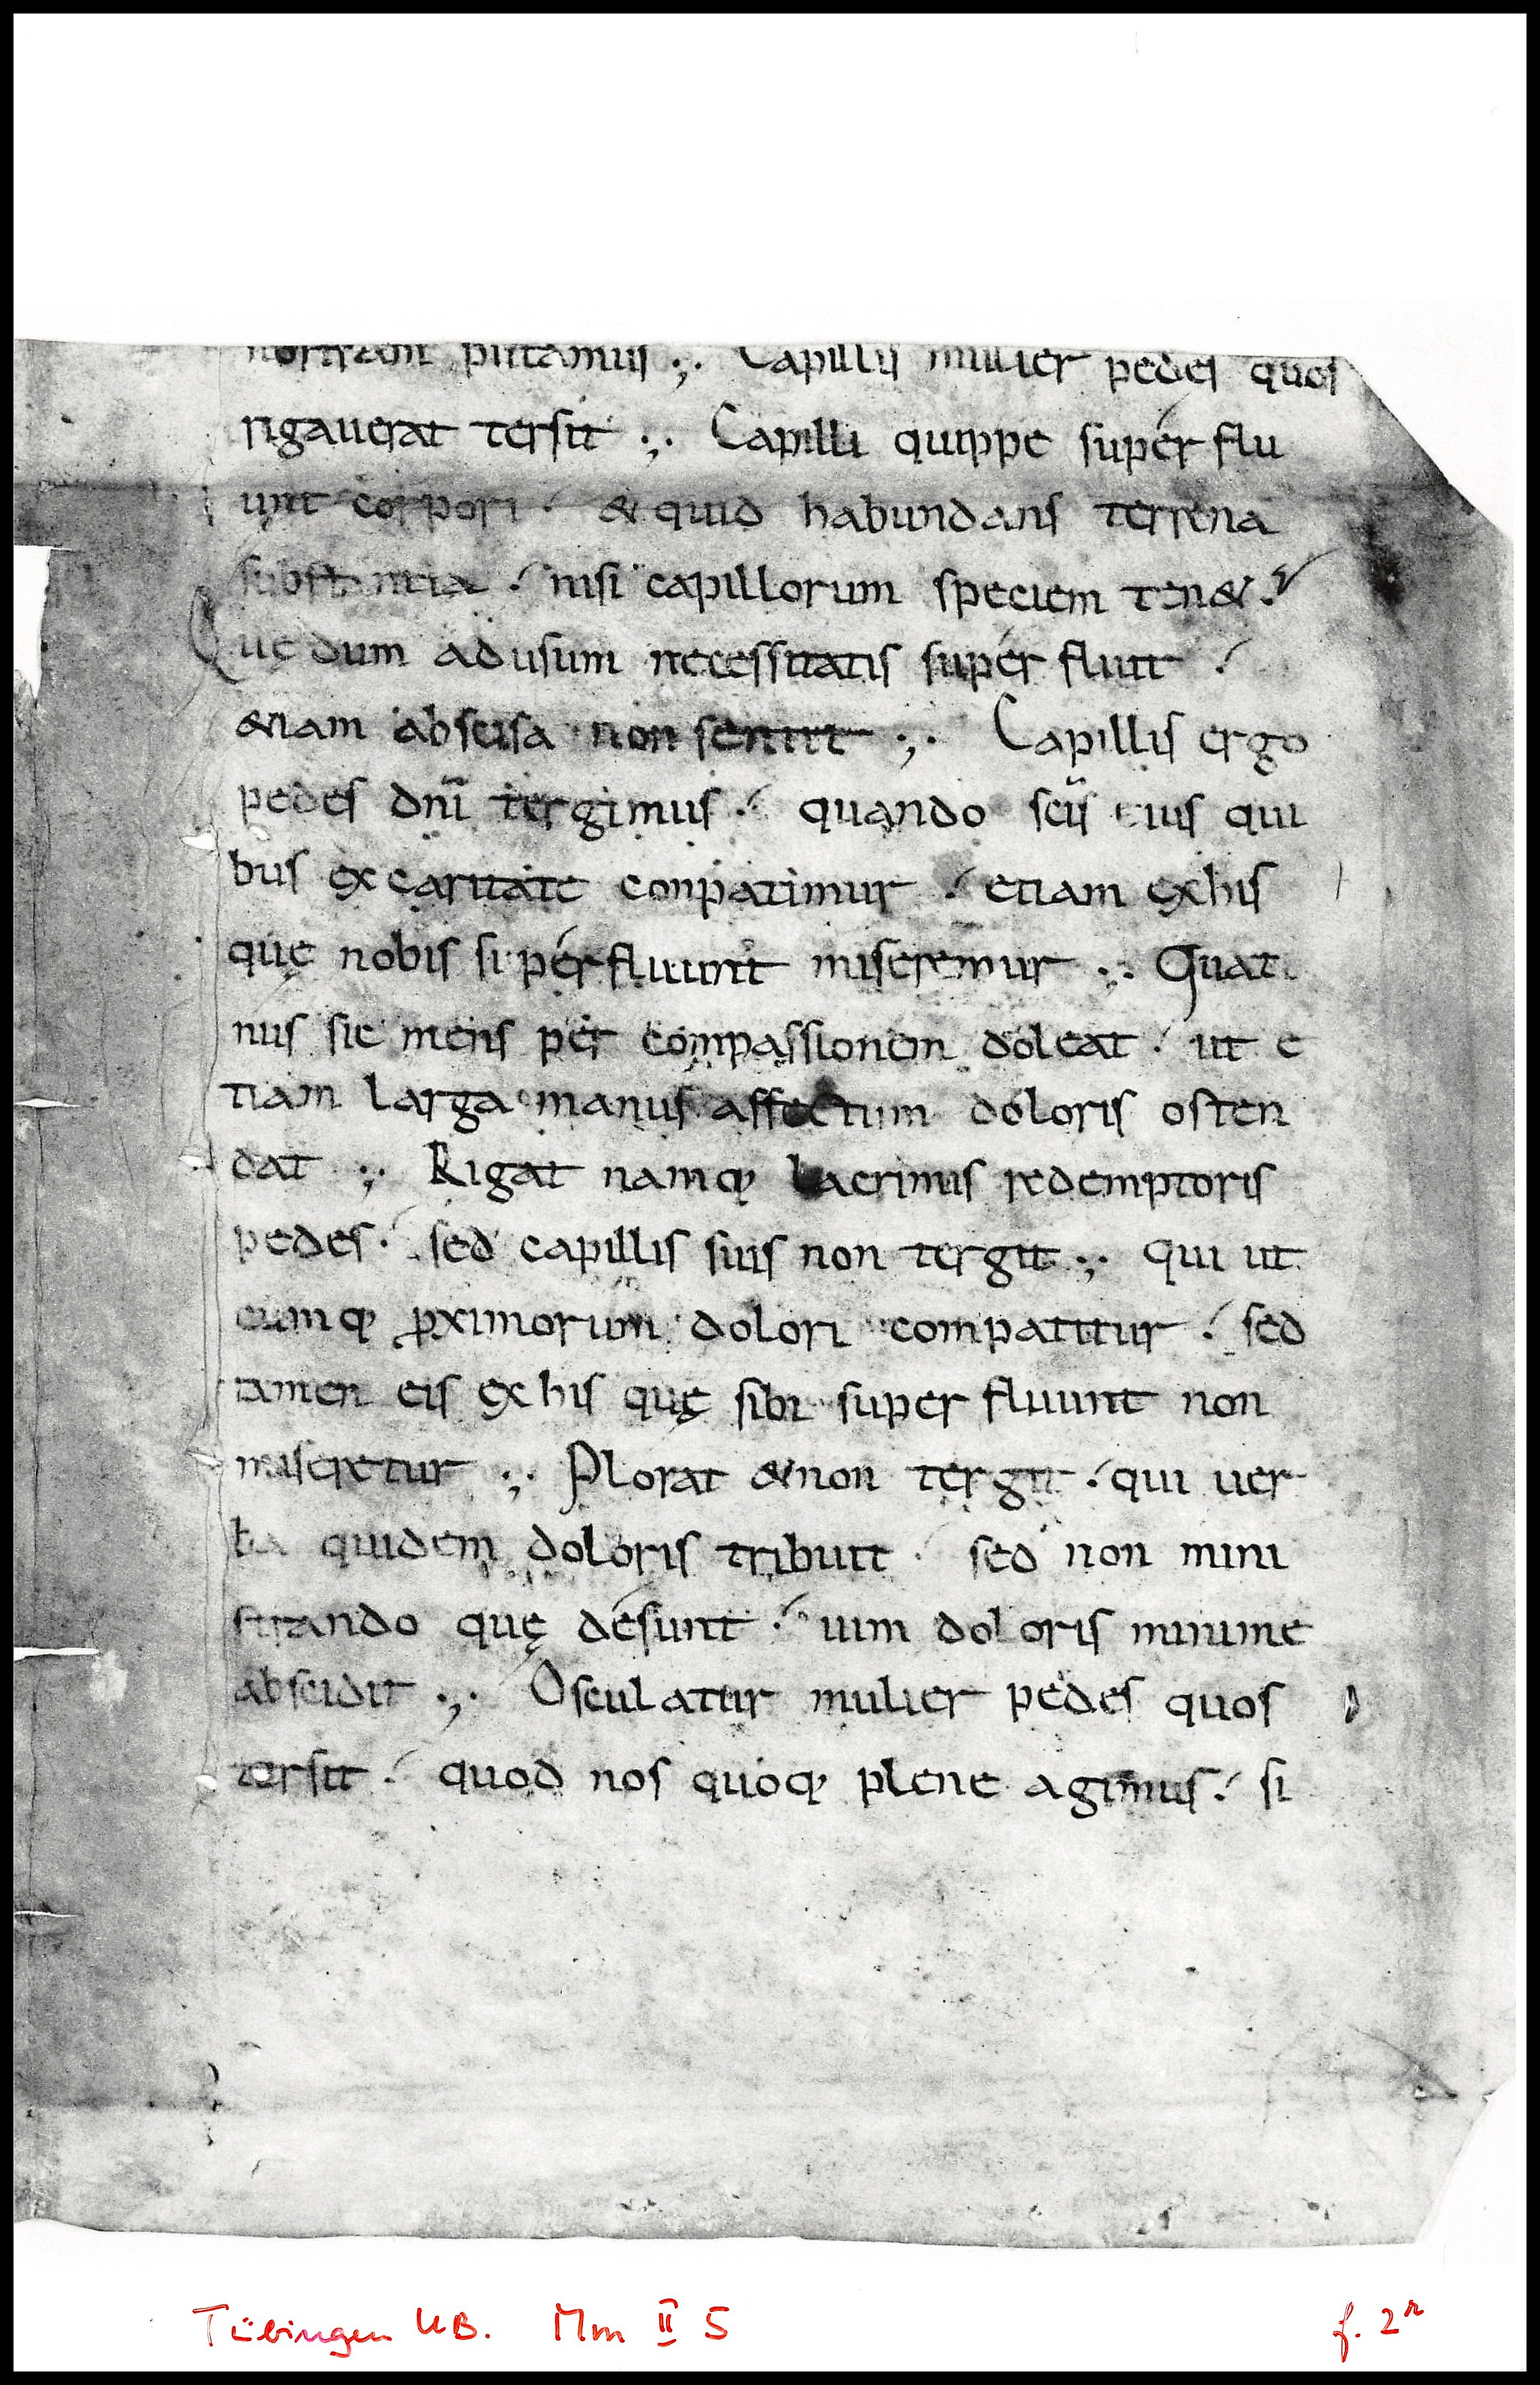 nostram putamus ;· Capillis mulier pedes quos
rigauerat tersit ;· Capilli quippe super flu
unt corpori ·´ & quid habundans terrena
substantia ·´ nisi capillorum speciem ten& ?
Quę dum ad usum necessitatis super fluit ·´
&iam abscisa non sentit ;· Capillis ergo
pedes dnī tergimus ·´ quando scīs eius qui
bus ex caritate conpatimur ·´ etiam ex his
quę nobis superfluunt miseremur ;· Quat
nus sic mens per compassionem doleat ·´ ut e
tiam larga manus affectum doloris osten
dat ;· Rigat namq; lacrimis redemptoris
pedes ·´ sed capillis suis non tergit ;· qui ut
cumq; ꝓximorum dolori compatitur ·´ sed
tamen eis ex his quę sibi super fluunt non
miseretur ;· Plorat & non tergit ·´ qui uer
ba quidem doloris tribuit ·´ sed non mini
strando quę desunt ·´ uim doloris minime
abscidit ;· Osculatur mulier pedes quos
tersit ·´ quod nos quoq; plene agimus ·´ si
Tübingen UB. Mm II 5
f. 2r